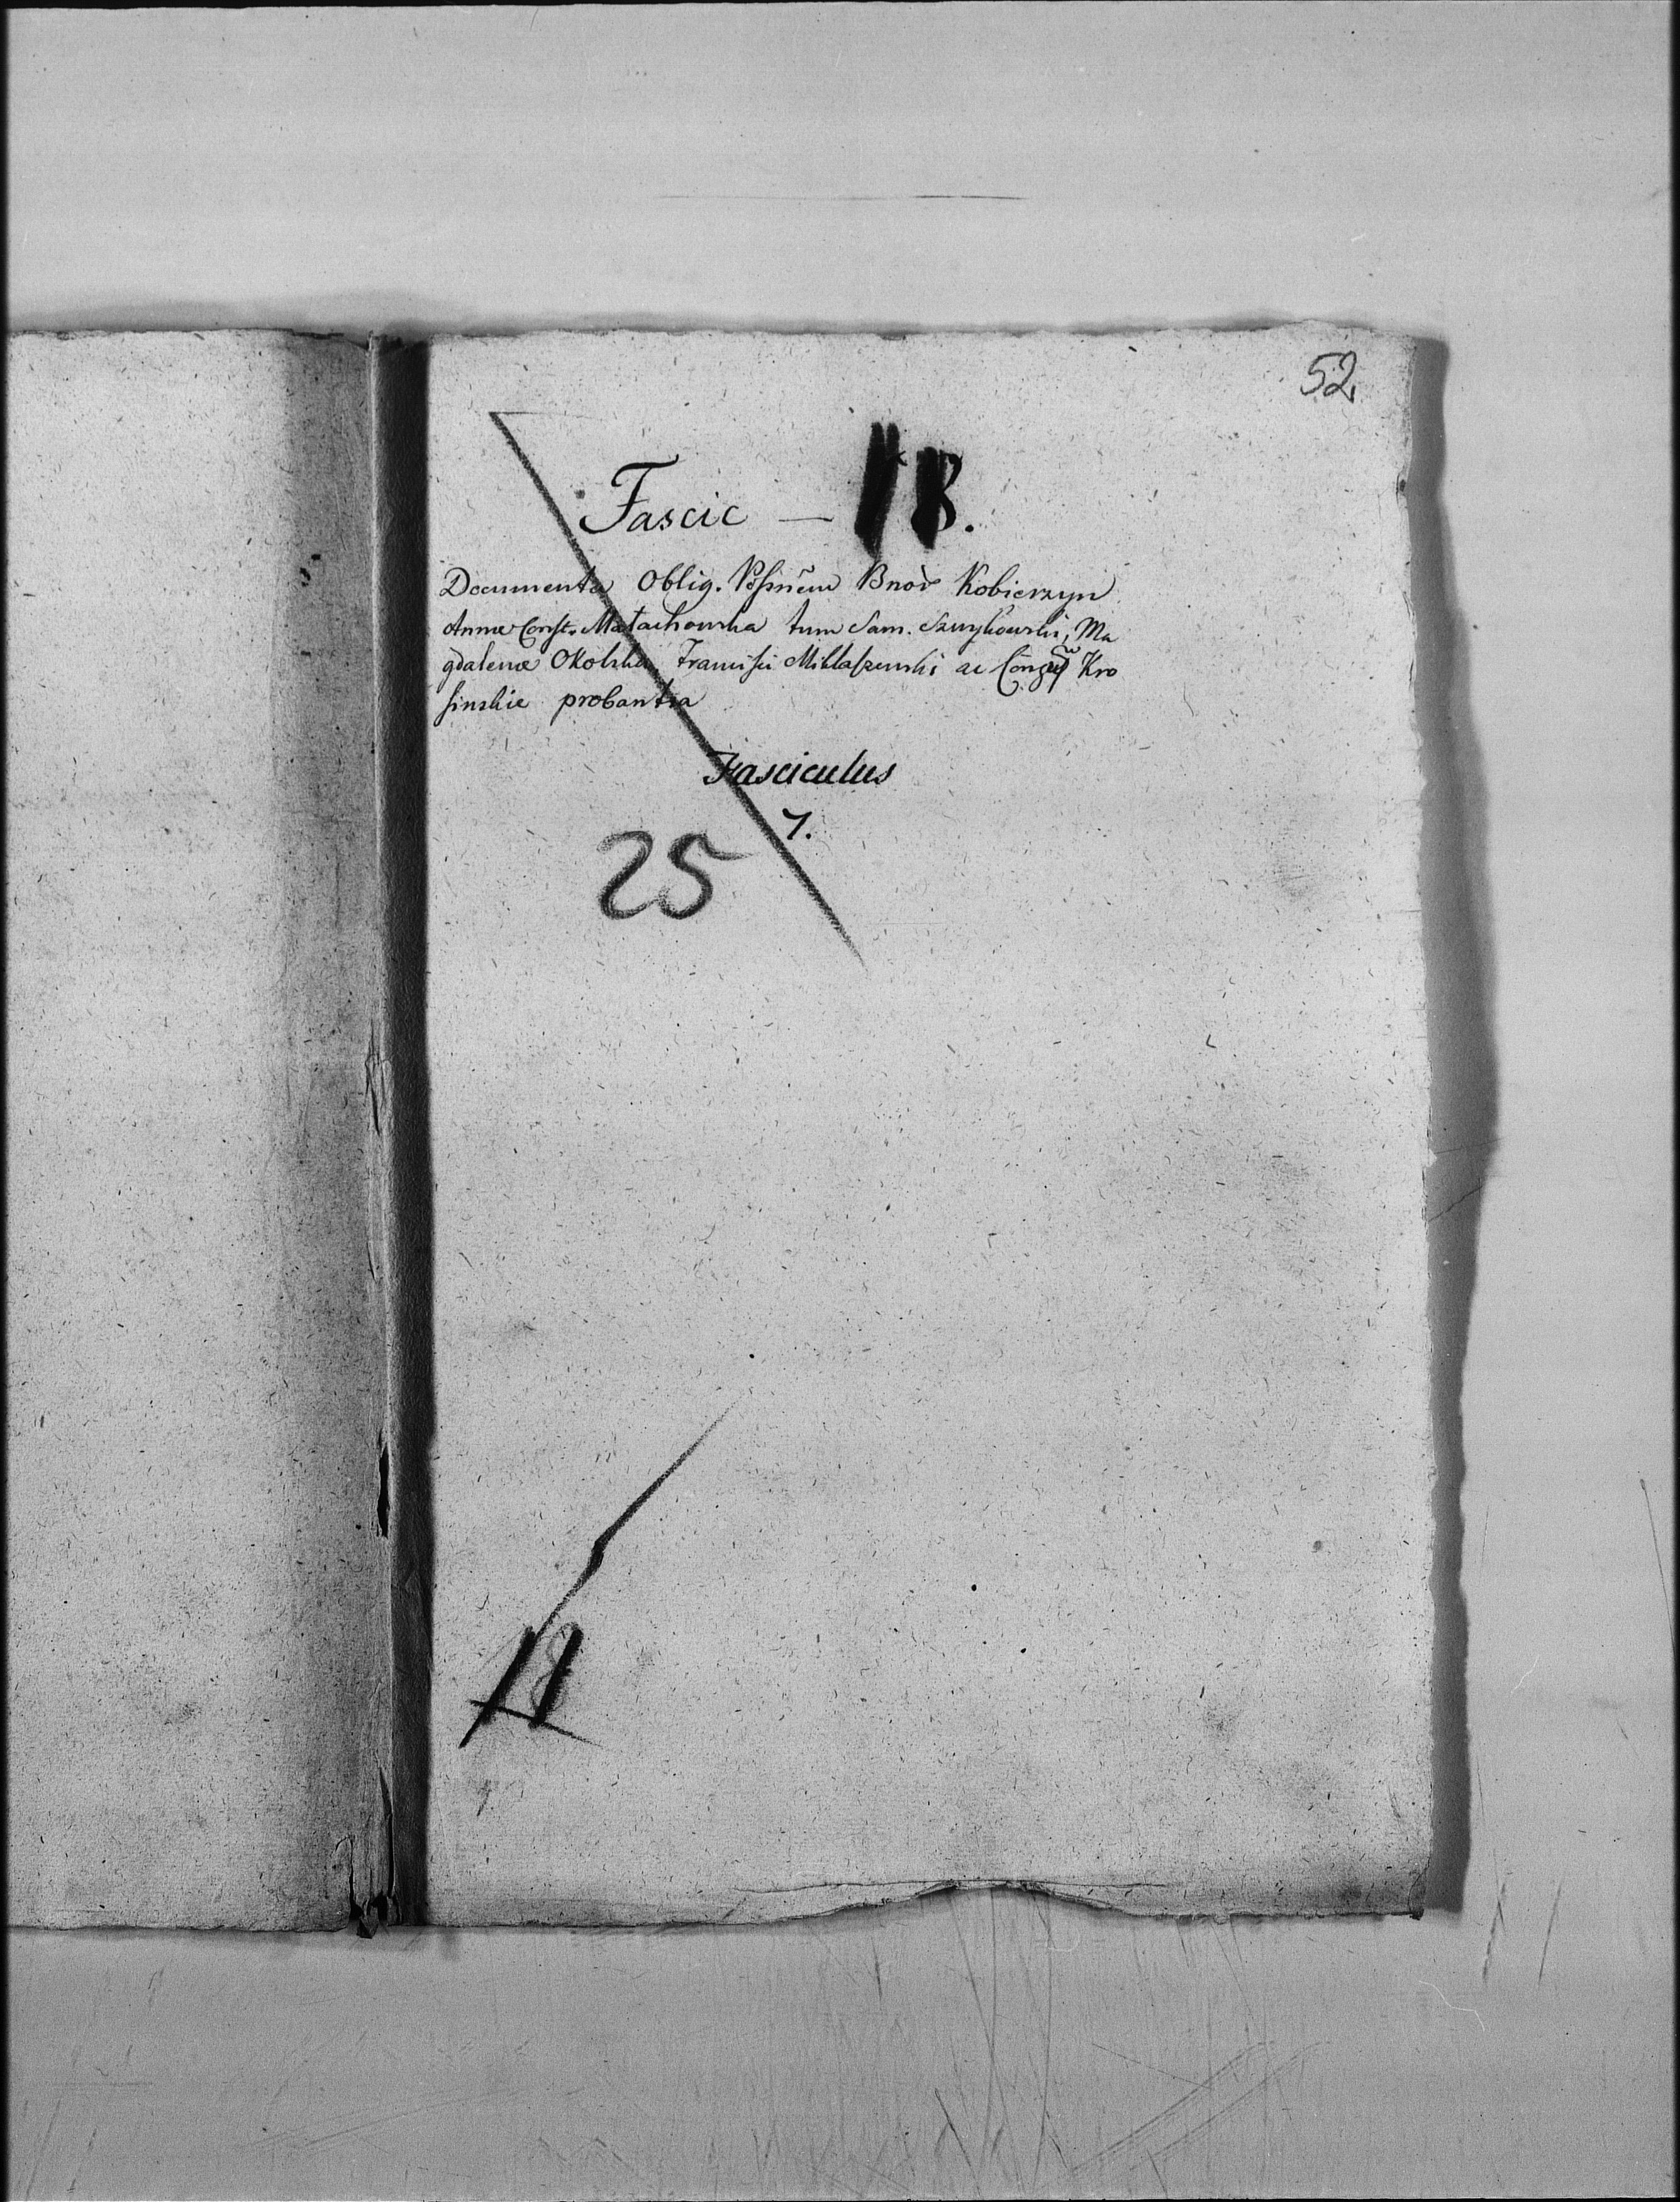 52
Fascic — 18.
Documenta Oblig. Poss̃nēm Bnor̃ Kobierzyn
Annæ Const. Małachowska tum Sam. Szwykowski, Ma
gdalenæ Okolska, Francisci Miklaszewski ac Kro
sinskie probantia
Fasciculus
7.
25
18